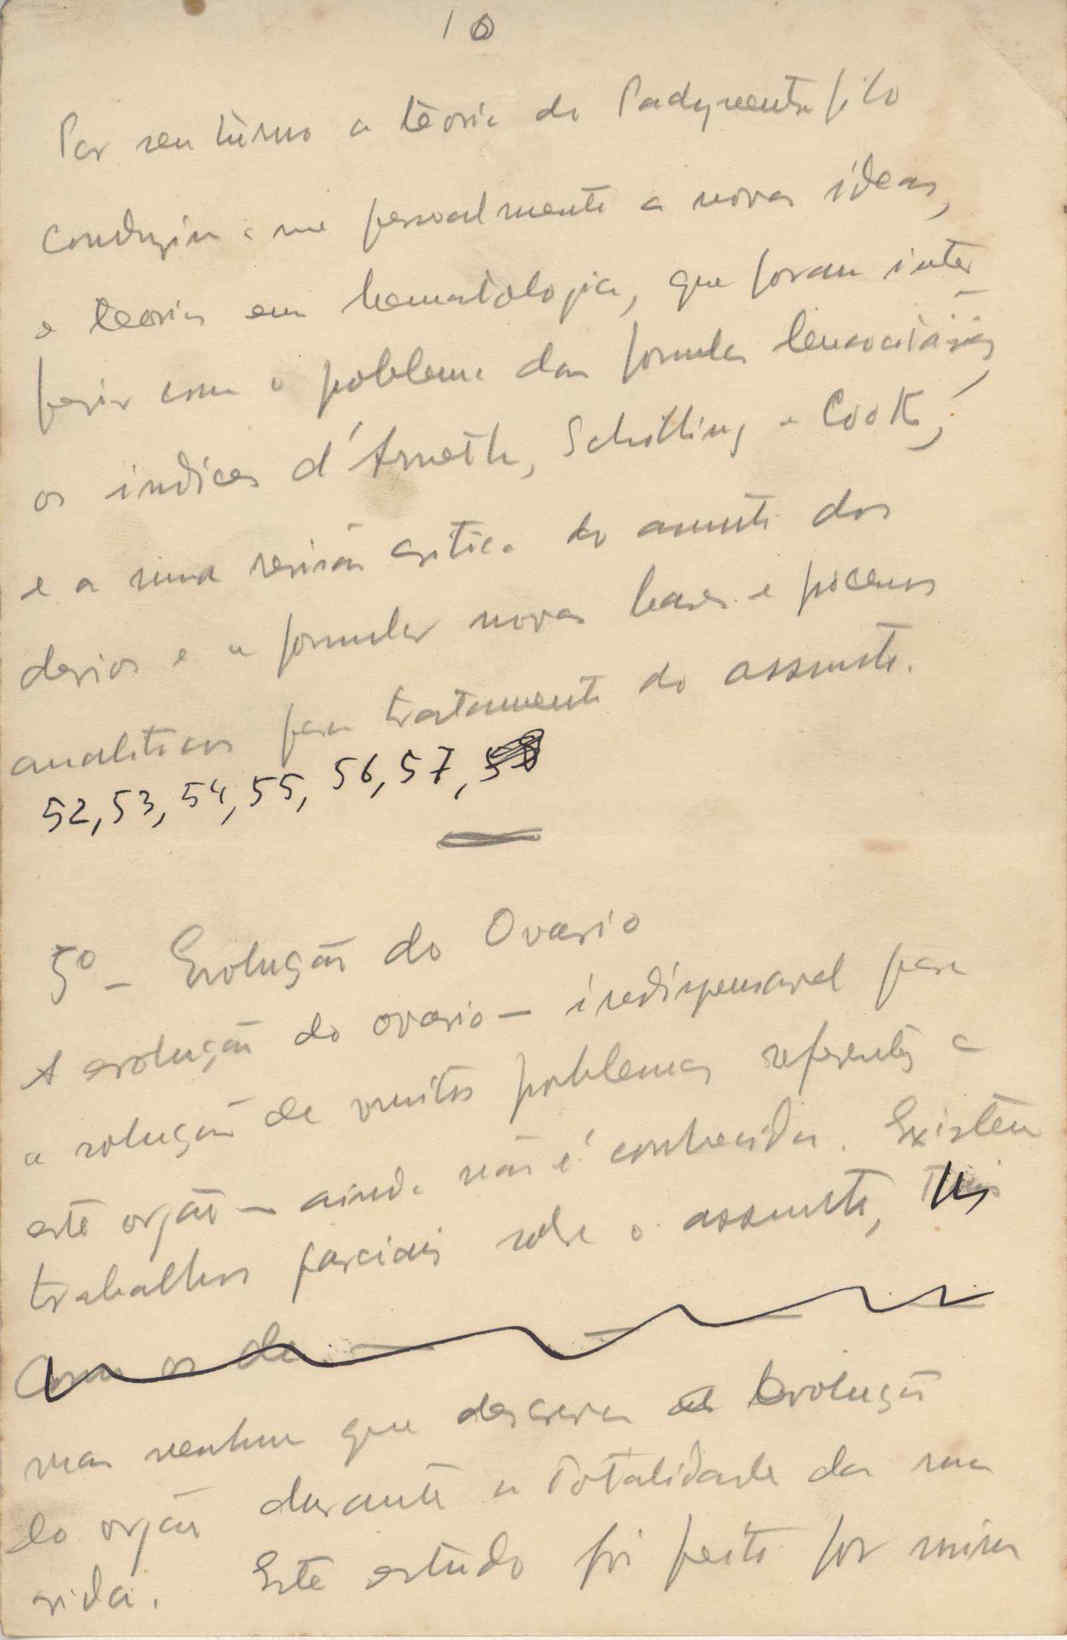 10
Por seu turno a teoria do
conduziu-me pessoalmente a novas ideas,
e teorias em hematologia, que foram inter
ferir com o problema das formulas leucocitárias,
os indices d'Arneth, Schilling e Cook,
e a uma revisão critica do assunto dos
desvios e a formular novas bases e
analiticos para tratamento do assunto.
52, 53, 54, 55, 56, 57, 58
5º - Evolução do Ovario
A evolução do ovario - indispensavel para
a solução de muitos problemas referentes a
este orgão - ainda não é conhecida. Existem
trabalhos parciais sobre o assunto,
Como os de
mas nenhum que descreva a evolução
do orgão durante a totalidade da sua
vida. Este estudo foi feito por mim